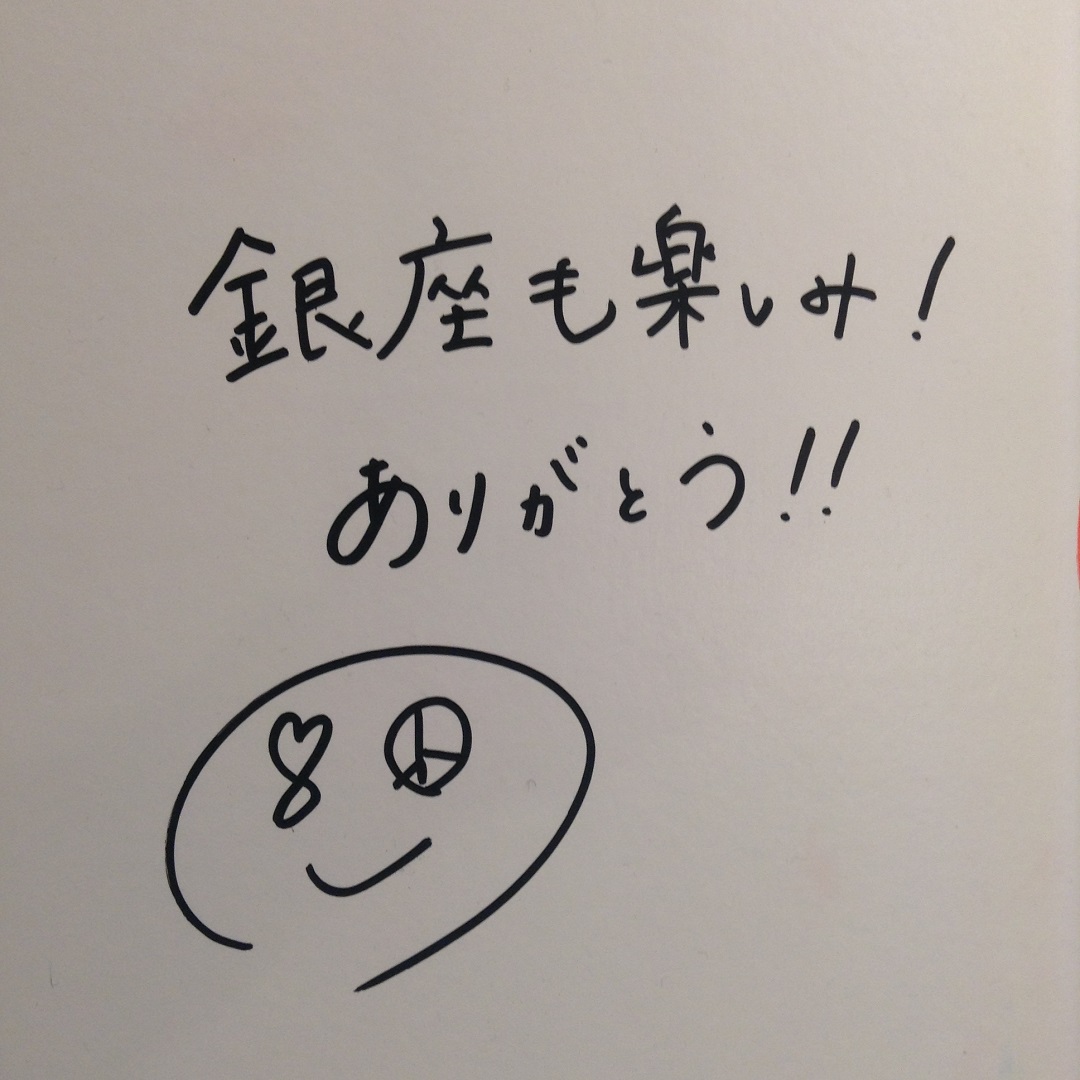 銀座も楽しみ!
ありがとう!!